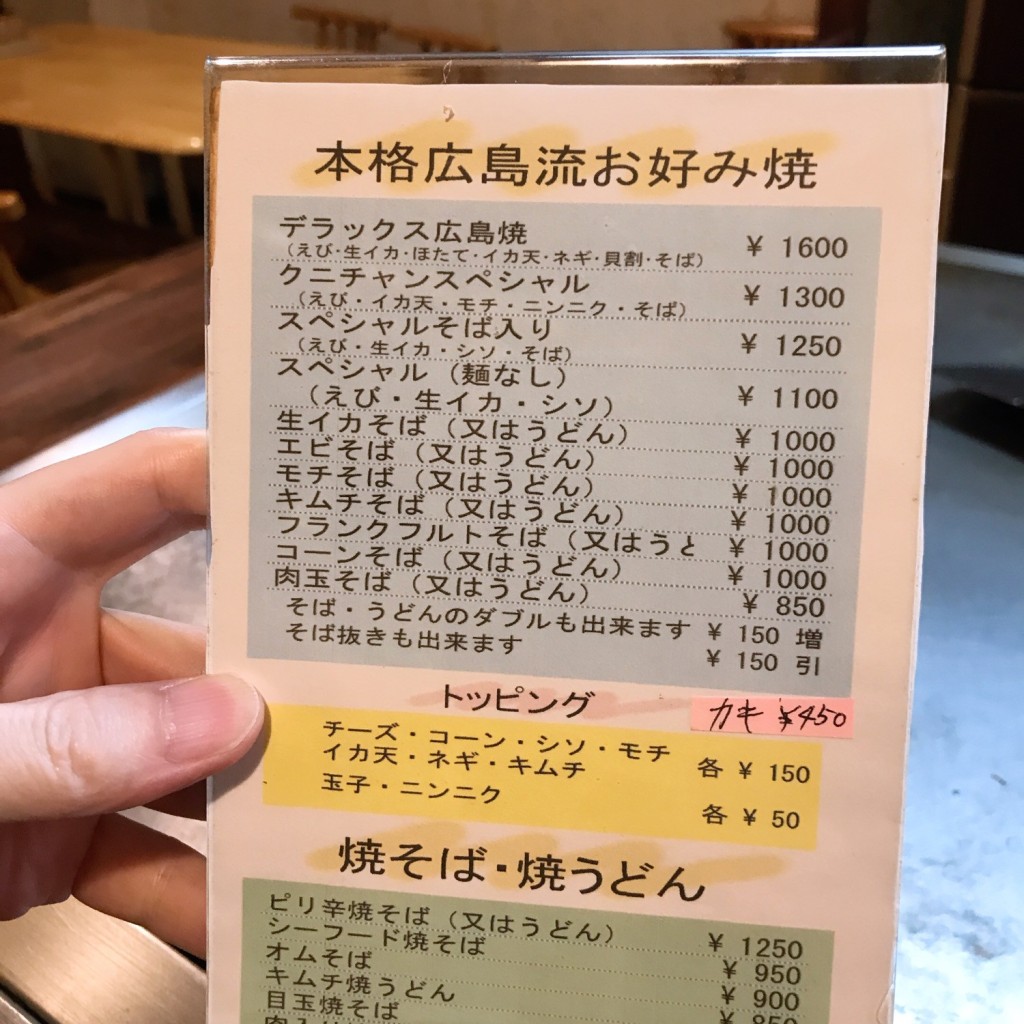 本格広島流お好み焼
デラックス広島焼 ¥ 1600
（えび・生イカ・ほたて・イカ天・ネギ・貝割・そば）
クニチャンスペシャル ¥ 1300
（えび・イカ天・モチ・ニンニク・そば）
スペシャルそば入り ¥ 1250
（えび・生イカ・シソ・そば）
スペシャル（麺なし）
（えび・生イカ・シソ） ¥ 1100
生イカそば（又はうどん） ¥ 1000
エビそば（又はうどん） ¥ 1000
モチそば（又はうどん） ¥ 1000
キムチそば（又はうどん） ¥ 1000
フランクフルトそば（又はうと ¥ 1000
コーンそば（又はうどん） ¥ 1000
肉玉そば（又はうどん） ¥ 850
そば・うどんのダブルも出来ます ¥ 150 増
そば抜きも出来ます ¥ 150 引
トッピング
カキ ¥450
チーズ・コーン・シソ・モチ
イカ天・ネギ・キムチ 各 ¥ 150
玉子・ニンニク 各 ¥ 50
焼そば・焼うどん
ピリ辛焼そば（又はうどん） ¥ 1250
シーフード焼そば ¥ 950
オムそば ¥ 900
キムチ焼うどん ¥ 850
目玉焼そば